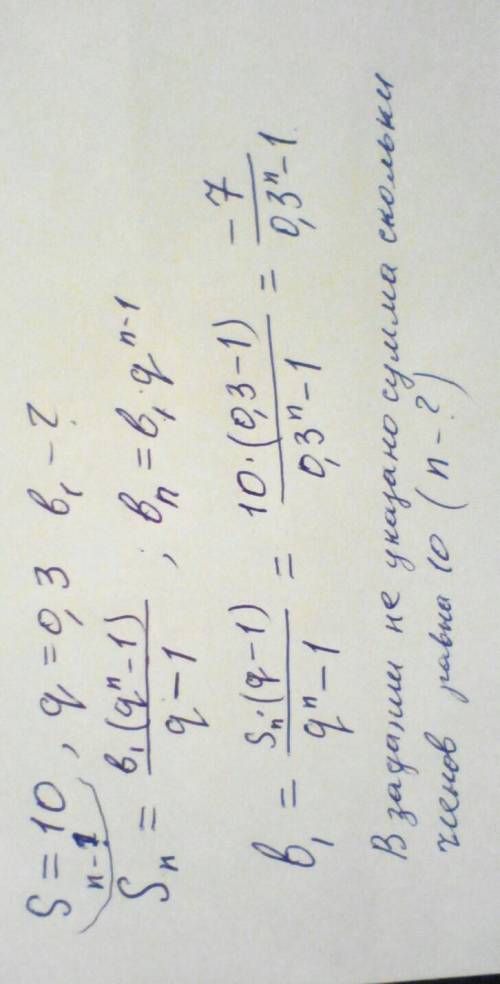 S = 10, q = 0,3 b₁ - ?
n - ?
Sₙ = b₁(qⁿ - 1) / q - 1 ; bₙ = b₁ · qⁿ⁻¹
b₁ = Sₙ·(q - 1) / qⁿ - 1 = 10·(0,3 - 1) / 0,3ⁿ - 1 = -7 / 0,3ⁿ - 1
В задании не указано сумма скольки
членов равна 10 (n - ?)